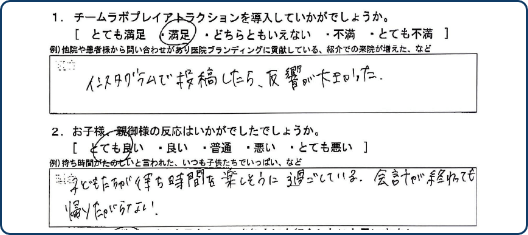 1．チームラボプレイアトラクションを導入していかがでしょうか。
[ とても満足 ・満足 ・どちらともいえない ・不満 ・とても不満 ]
例)他院や患者様から問い合わせがあり医院ブランディングに貢献している、紹介での来院が増えた、など
インスタグラムで投稿したら、反響が大きかった。
2．お子様、親御様の反応はいかがでしたでしょうか。
[ とても良い ・良い ・普通 ・悪い ・とても悪い ]
例)待ち時間がたのしいと言われた、いつも子供たちでいっぱい、など
子どもたちが待ち時間を楽しそうに過ごしている。会計が終わっても
帰りたがらない。